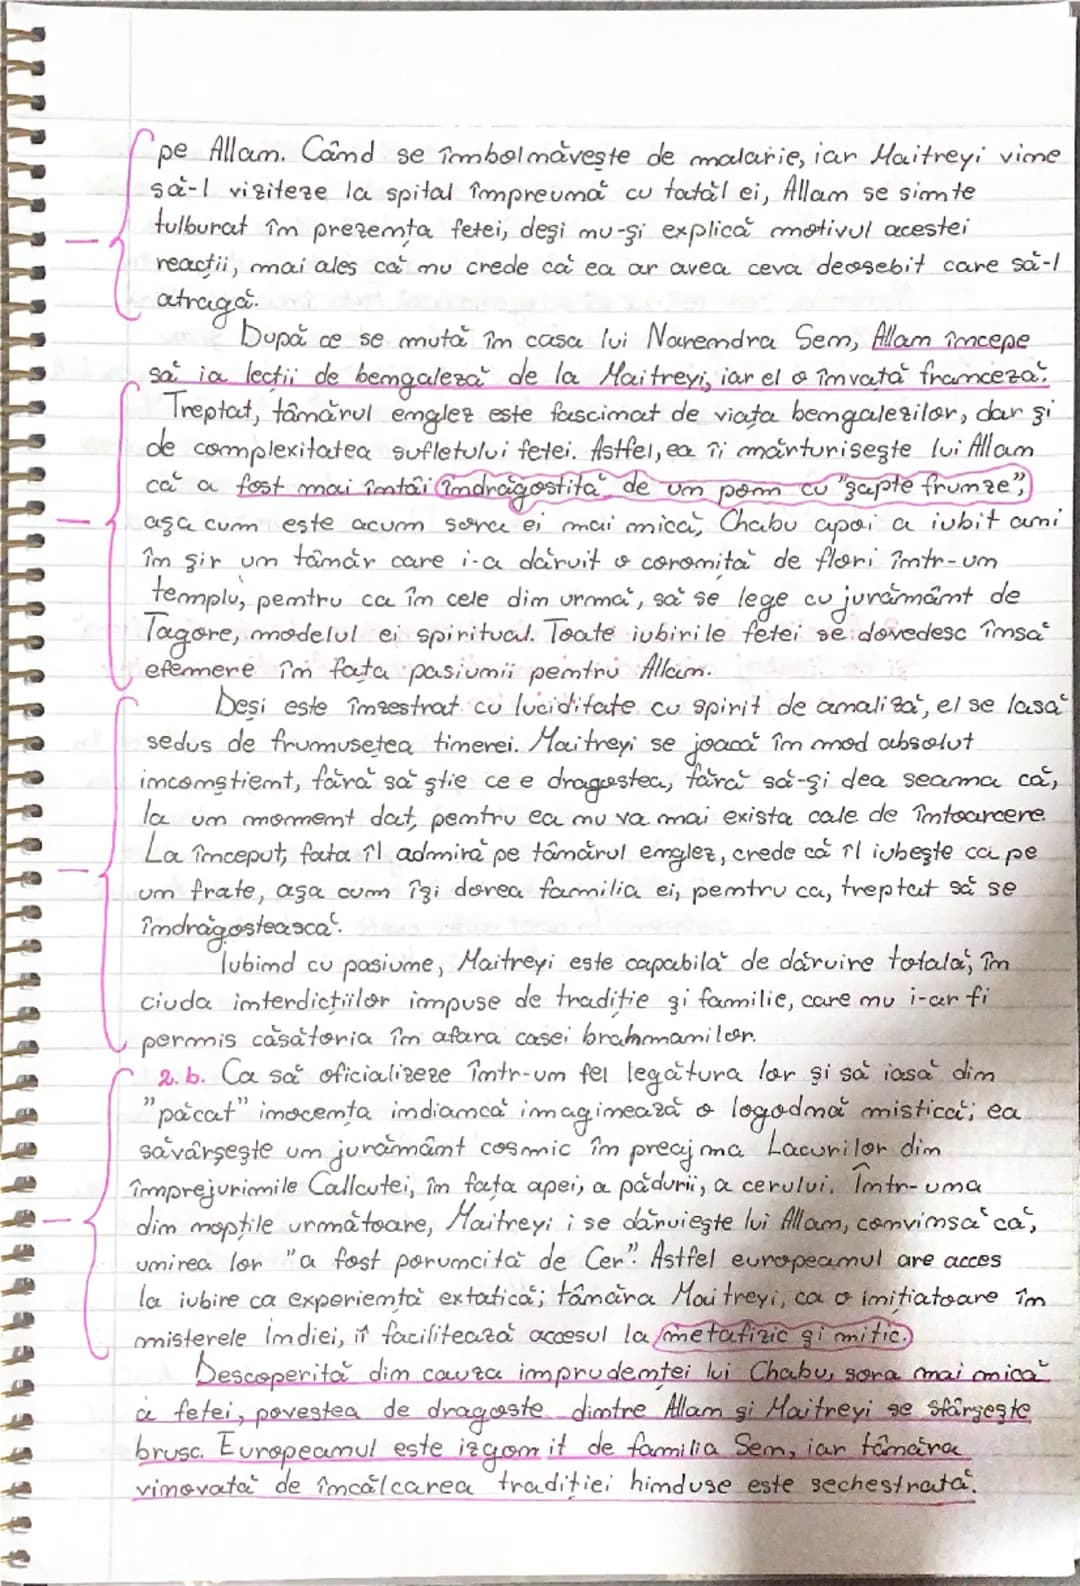 pe Allan. Când se îmbolnăvește de malarie, iar Maitreyi vine
să-l viziteze la spital împreună cu tatăl ei, Allan se simte
tulburat în prezența fetei, deși nu-și explică motivul acestei
reacții, mai ales că nu crede că ea ar avea ceva deosebit care să-l
atragă.
După ce se mută în casa lui Narendra Sen, Allan începe
să ia lecții de bengaleză de la Maitreyi, iar el o învață franceză.
Treptat, tânărul englez este fascinat de viața bengalezilor, dar și
de complexitatea sufletului fetei. Astfel, ea îi mărturisește lui Allan
că a fost mai întâi îndrăgostită de un pom cu "șapte frunze",
așa cum este acum sora ei mai mică, Chabu apoi a iubit ani
în șir un tânăr care i-a dăruit o coroniță de flori într-un
templu, pentru ca în cele din urmă, să se lege cu jurământ de
Tagore, modelul ei spiritual. Toate iubirile fetei se dovedesc însă
efemere în fața pasiunii pentru Allan.
Deși este înzestrat cu luciditate cu spirit de analiză, el se lasă
sedus de frumusețea tinerei. Maitreyi se joacă în mod absolut
inconștient, fără să știe ce e dragostea, fără să-și dea seama că,
la un moment dat, pentru ea nu va mai exista cale de întoarcere.
La început, fata îl admiră pe tânărul englez, crede că îl iubește ca pe
un frate, așa cum își dorea familia ei, pentru ca, treptat să se
îndrăgostească.
Iubind cu pasiune, Maitreyi este capabilă de dăruire totală, în
ciuda interdicțiilor impuse de tradiție și familie, care nu i-ar fi
permis căsătoria în afara casei brahmanilor.
2. b. Ca să oficializeze într-un fel legătura lor și să iasă din
"păcat" inocența indiancă imaginează o logodnă mistică; ea
săvârșește un jurământ cosmic în preajma Lacurilor din
împrejurimile Callcutei, în fața apei, a pădurii, a cerului. Într-una
din nopțile următoare, Maitreyi i se dăruiește lui Allan, convinsă că,
unirea lor "a fost poruncită de Cer". Astfel europeanul are acces
la iubire ca experiență extatică; tânăra Maitreyi, ca o inițiatoare în
misterele Indiei, îi facilitează accesul la metafizic și mitic.
Descoperită din cauza imprudenței lui Chabu, sora mai mică
a fetei, povestea de dragoste dintre Allan și Maitreyi se sfârșește
brusc. Europeanul este izgonit de familia Sen, iar tânăra
vinovată de încălcarea tradiției hinduse este sechestrată.